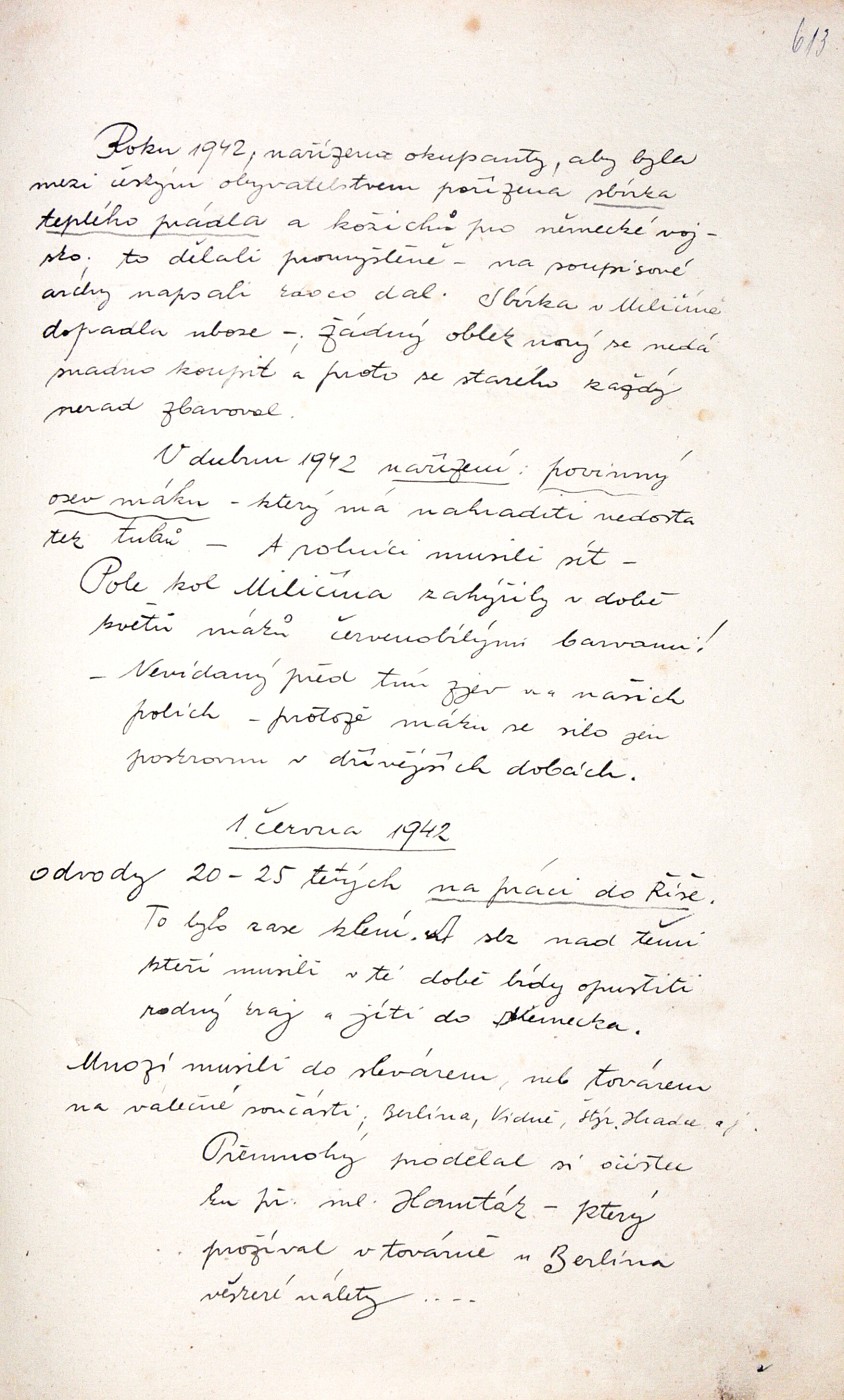 613
Roku 1942, nařízeno okupanty, aby byla
mezi českým obyvatelstvem pořízena sbírka
teplého prádla a kožichů pro německé voj-
sko. to dělali promyšleně - na soupisové
archy napsali co dal. Sbírka v Miličíně
dopadla uboze - žádný oblek nový se nedá
snadno koupit a proto se starého každý
nerad zbavoval.
V dubnu 1942 nařízení: povinný
osev máku - který má nahraditi nedosta
tek tuků - A rolníci musili sít -
Pole kol Miličína zahýřily v době
květů máků červenobílými barvami!
- Nevídaný před tím zjev na našich
polích - protože máku se silo jen
poskrovnu v dřívějších dobách.
1. června 1942
odvody 20-25 letých na práci do Říše.
To bylo zase klení. A slz nad těmi
kteří musili v té době bídy opustiti
rodný kraj a jíti do Německa.
Mnozí musili do sléváren, neb továren
na válečné součásti, Berlína, Vídně, Štýr. Hradce aj.
Přemnohý prodělal si očistec
ku př. ml. Homták - který
prožíval v továrně u Berlína
veškeré nálety ....